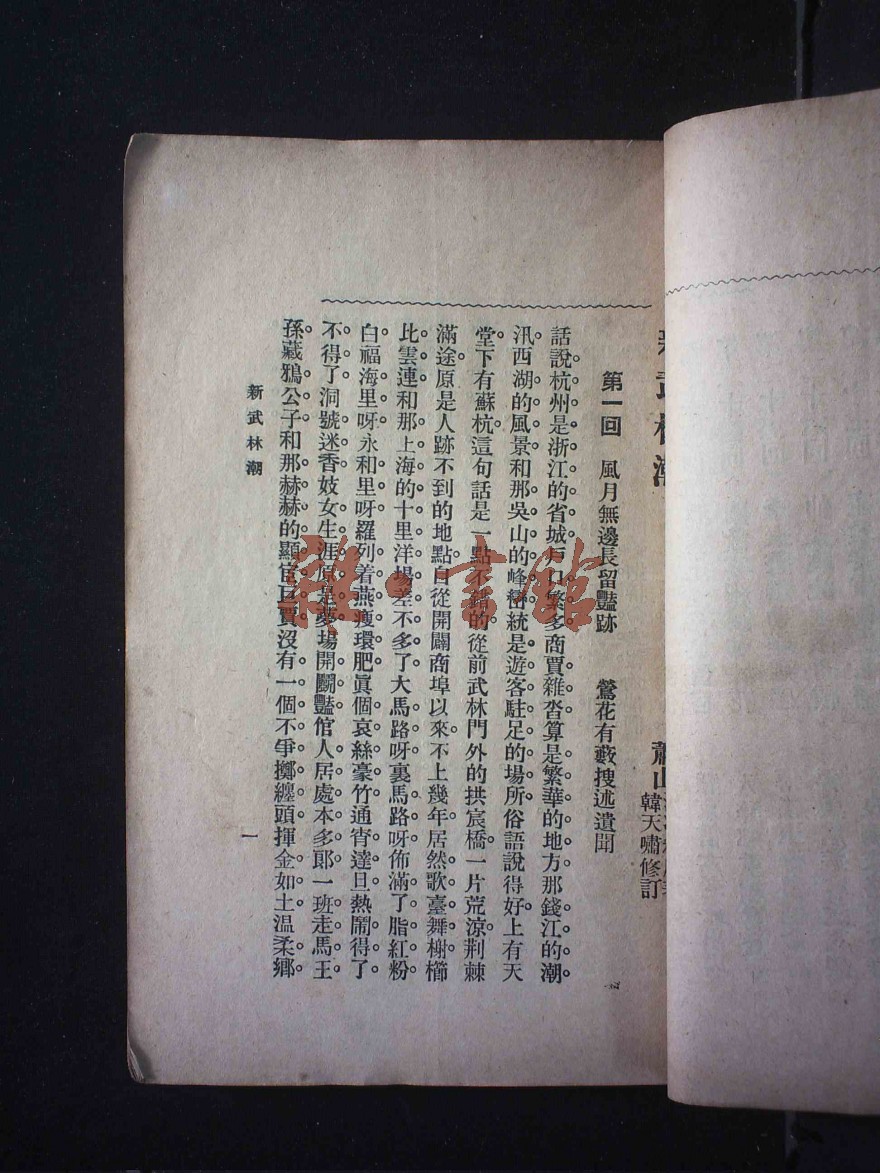 新武林潮
蕭山
韓天嘯修訂
第一回　風月無邊長留豔跡　鶯花有藪搜述遺聞
話說杭州是浙江的省城。戶口繁多。商賈雜沓。算是繁華的地方。那錢江的潮
汛。西湖的風景。和那吳山的峰巒。統是遊客駐足的場所。俗語說得好。上有天
堂。下有蘇杭。這句話是一點不錯的。從前武林門外的拱宸橋。一片荒涼。荆棘
滿途。原是人跡不到的地點。自從開闢商埠以來。不上幾年。居然歌臺舞榭。櫛
比雲連。和那上海的十里洋場。差不多了。大馬路呀。裏馬路呀。佈滿了脂紅粉
白。福海里呀。永和里呀。羅列着燕瘦環肥。眞個哀絲豪竹。通宵達旦。熱鬧得了
不得了。洞號迷香。妓女生涯原是夢。場開鬭豔。倌人居處本多郞。一班走馬王
孫。藏鴉公子。和那赫赫的顯官巨賈。沒有一個不爭擲纏頭。揮金如土。溫柔鄉
新武林潮
一
雜·書館